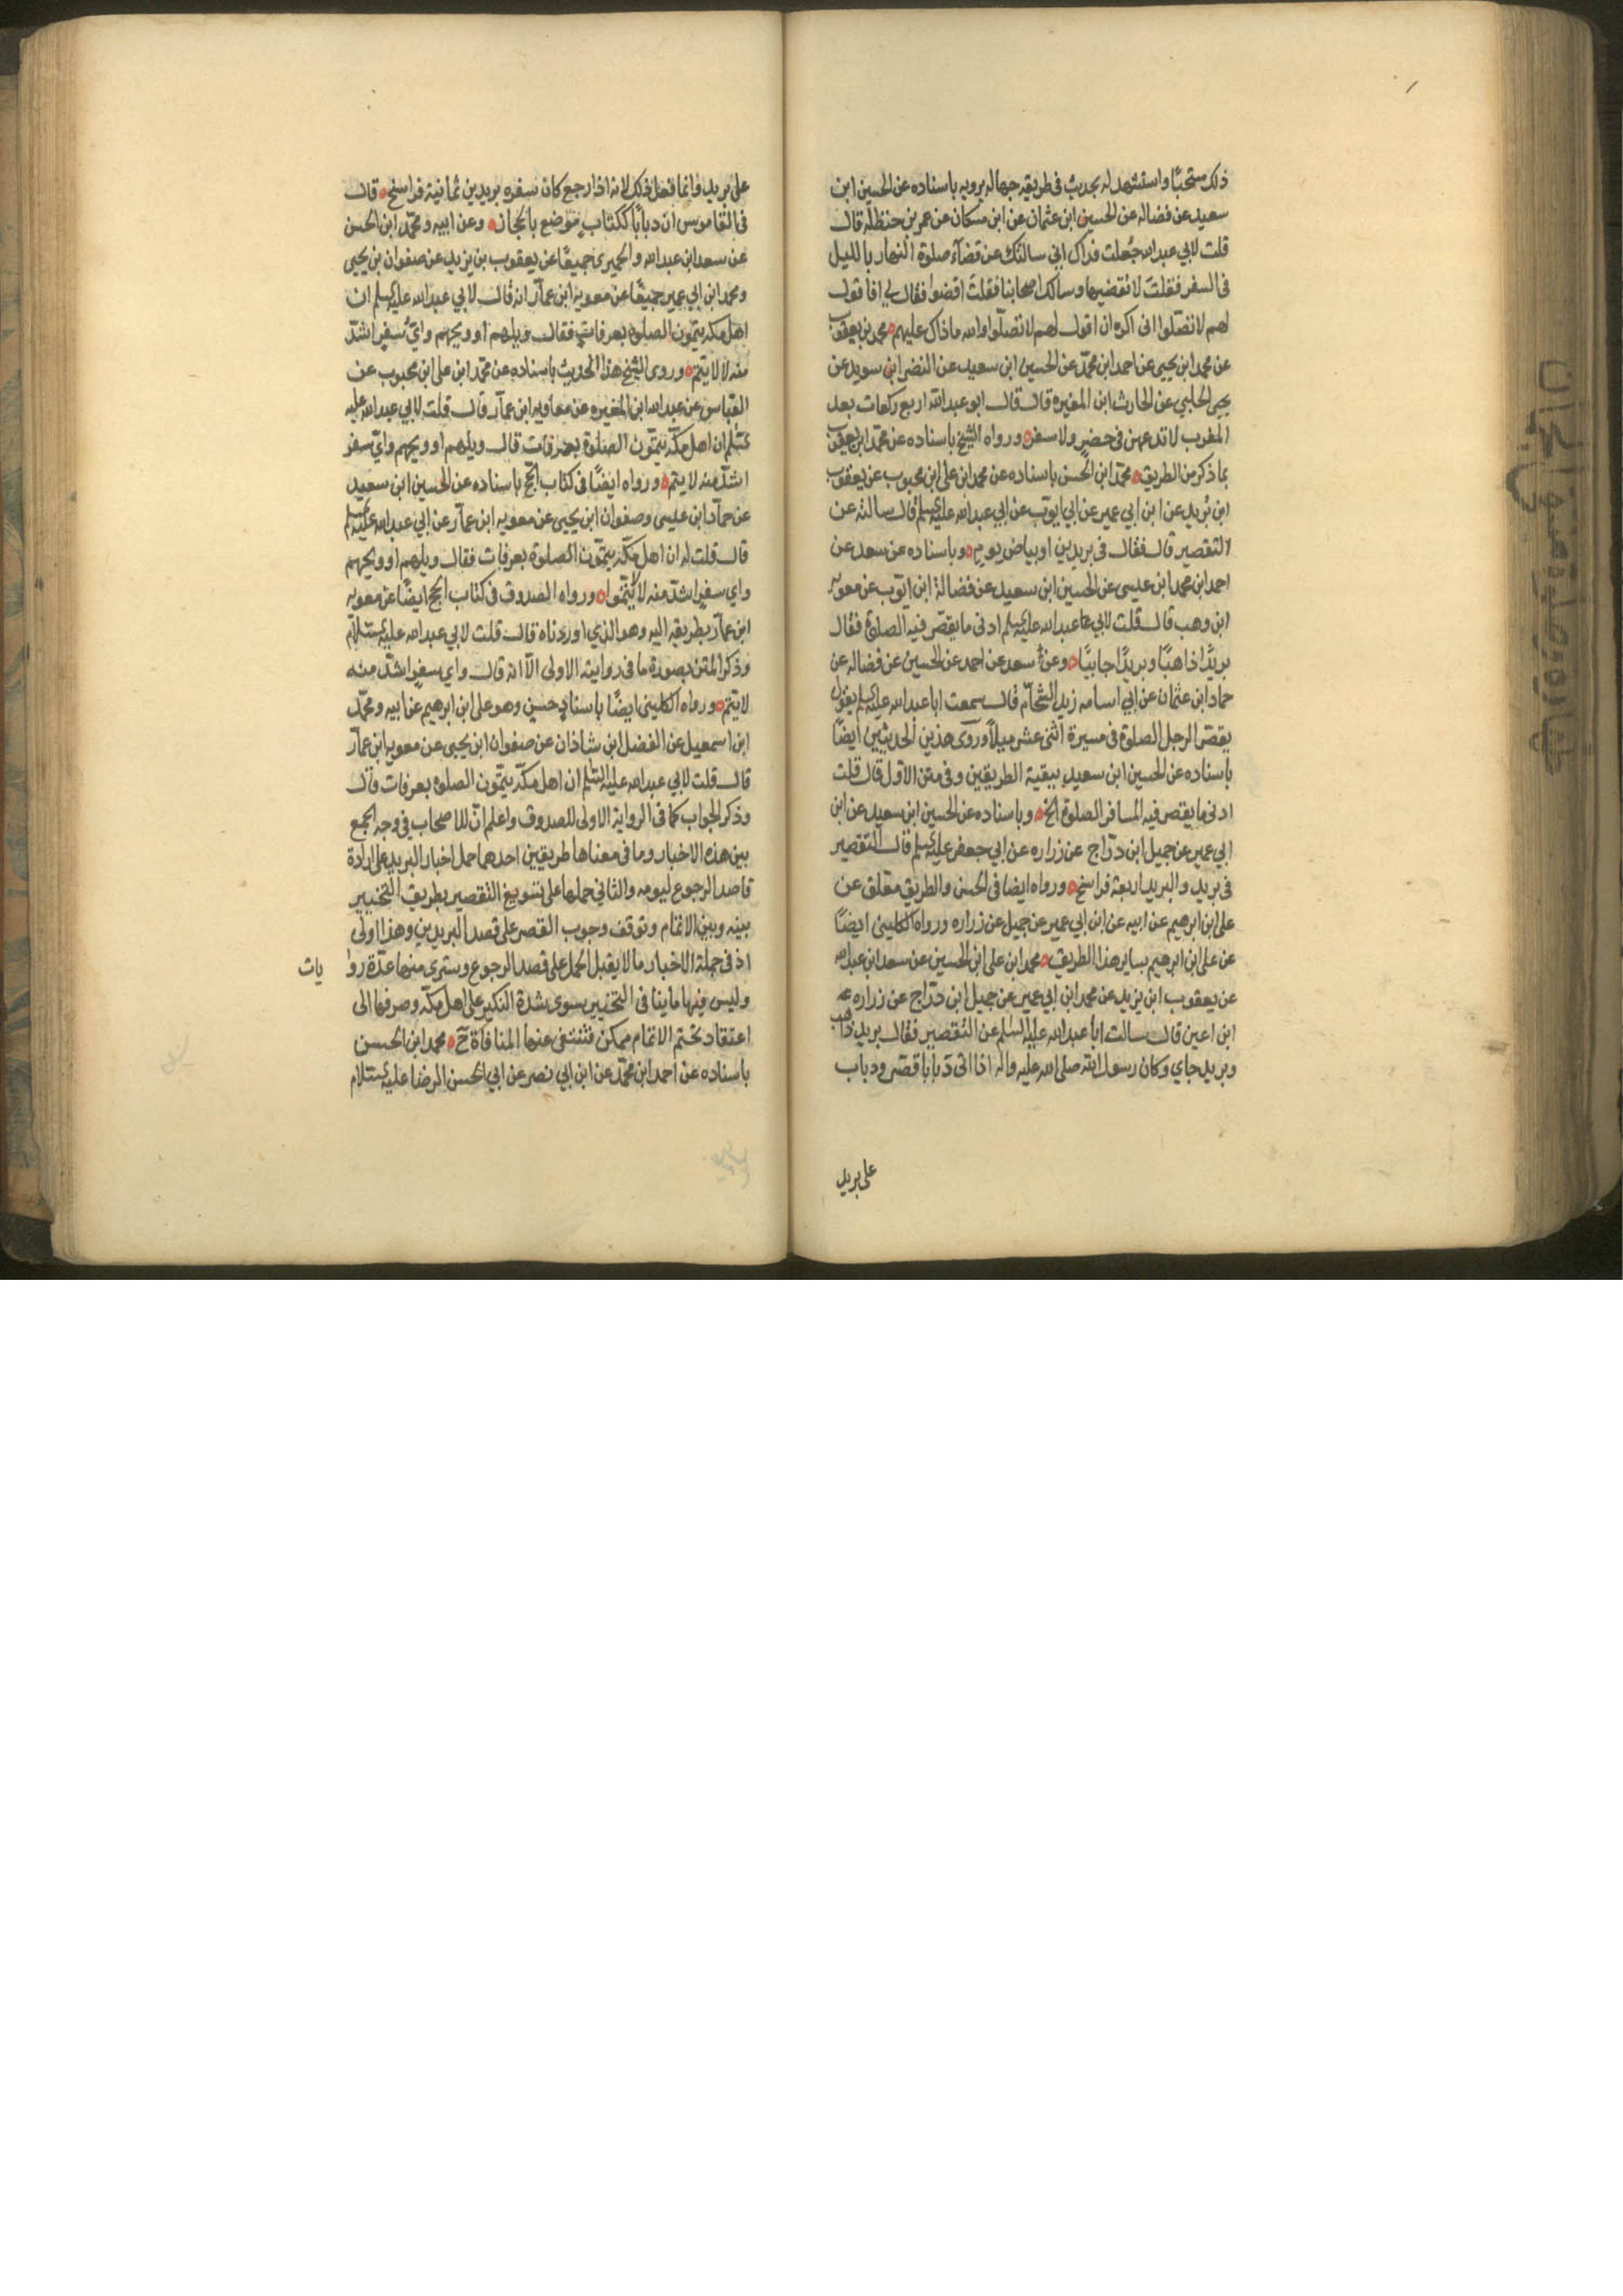 ذلك مستحبًا واستشهد له بحديث في طريقه جهالة يرويه باسناده عن الحسين ابن
سعيد عن فضاله عن الحسين ابن عثمان عن ابن مسكان عن عمر بن حنظله قال
قلت لابي عبد الله جُعلت فداك اني سالتك عن قضآء صلوة النهار بالليل
في السفر فقلت لا تقضيها وسالك اصحابنا فقلت اقضوا فقال لي افاقول
لهم لا تصلوا اني اكره ان اقول لهم لا تصلّوا والله ماذاك عليهم محمد بن يعقوب
عن محمد ابن يحيى عن احمد ابن محمّد عن الحسين ابن سعيد عن النضر ابن سويد عن
يحيى الحلبي عن الحارث ابن المغيره قال قال ابو عبد الله اربع ركعات بعد
المغرب لا تدعهن في حضر ولا سفر ورواه الشيخ باسناده عن محمّد ابن يعقوب
بما ذكر من الطريق محمّد ابن الحسن باسناده عن محمد ابن علي ابن محبوب عن يعقوب
ابن يزيد عن ابن ابي عمير عن ابي ايوب عن ابي عبد الله عليه السلم قال سالته عن
التقصير قال فقال في بريدين او بياض يوم وباسناده عن سعد عن
احمد ابن محمد ابن عيسى عن الحسين ابن سعيد عن فضالة ابن ايّوب عن معويه
ابن وهب قال قلت لابي عبد الله عليه السلم ادنى ما يقصّر فيه الصلوة فقال
بريدًا ذاهبًا وبريدًا جائيًا وعن سعد عن احمد عن الحسين عن فضاله عن
حماد ابن عثمان عن ابي اسامه زيد الشحّام قال سمعت ابا عبد الله عليه السلم يقول
يقصّر الرجل الصلوة في مسيرة اثنى عشر ميلاً وروى هذين الحديثين ايضًا
باسناده عن الحسين ابن سعيد ببقية الطريقين وفي متن الاول قال قلت
ادنى ما يقصر فيه المسافر الصلوة الخ وباسناده عن الحسين ابن سعيد عن ابن
ابي عمير عن جميل ابن درّاج عن زراره عن ابي جعفر عليه السلم قال التقصير
في بريد والبريد اربعة فراسخ ورواه ايضا في الحسن والطريق معلق عن
علي ابن ابرهيم عن ابيه عن ابن ابي عمير عن جميل عن زراره ورواه الكليني ايضًا
عن علي ابن ابرهيم بساير هذا الطريق محمد ابن علي ابن الحسين عن سعد ابن عبد الله
عن يعقوب ابن يزيد عن محمد ابن ابي عمير عن جميل ابن درّاج عن زراره
ابن اعين قال سالت ابا عبد الله عليه السلم عن التقصير فقال بريد ذاهب
وبريد جاي وكان رسول الله صلى الله عليه واله اذا اتى ذبابًا قصّر وذباب
على بريد
على بريد وانما فعل ذلك لانه اذا رجع كان سفره بريدين ثمانية فراسخ قال
في القاموس ان دبابًا ككتاب موضع بالحجاز وعن ابيه ومحمّد ابن الحسن
عن سعد ابن عبد الله والحميرى جميعًا عن يعقوب بن يزيد عن صفوان بن يحيى
ومحمد ابن ابي عمير جميعًا عن معويه ابن عمار انه قال لابي عبد الله عليه السلم ان
اهل مكه يتمّون الصلوة بعرفات فقال ويلهم او ويحهم وايّ سفر اشدّ
منه لا لا يتم وروى الشيخ هذا الحديث باسناده عن محمّد ابن علي ابن محبوب عن
العباس عن عبد الله ابن المغيره عن معاويه ابن عمار قال قلت لابي عبد الله عليه
السّلم ان اهل مكّه يتمّون الصلوة بعرفات قال ويلهم او ويحهم وايّ سفر
اشدّ منه لا يتم ورواه ايضًا في كتاب الحج باسناده عن الحسين ابن سعيد
عن حمّاد ابن عيسى وصفوان ابن يحيى عن معويه ابن عمار عن ابي عبد الله عليه السلم
قال قلت له ان اهل مكّه يتمّون الصلوة بعرفات فقال ويلهم او ويحهم
واي سفر اشدّ منه لا يتمّوا ورواه الصدوق في كتاب الحج ايضًا عن معويه
ابن عمار بطريقه اليه وهو الذي اوردناه قال قلت لابي عبد الله عليه السّلام
وذكر المتن بصورة ما في روايته الاولى الّا انه قال واي سفر اشدّ منه
لا يتم ورواه الكليني ايضًا باسناد حسن وهو علي ابن ابرهيم عن ابيه ومحمّد
ابن اسمعيل عن الفضل ابن شاذان عن صفوان ابن يحيى عن معويه ابن عمار
قال قلت لابي عبد الله عليه السّلم ان اهل مكّه يتمّون الصلوه بعرفات قال
وذكر الجواب كما في الرواية الاولى للصدوق واعلم ان للاصحاب في وجه الجمع
بين هذه الاخبار وما في معناها طريقين احدهما حمل اخبار البريد على ارادة
قاصد الرجوع ليومه والثاني حملها على تسويغ التقصير بطريق التخيير
بينه وبين الاتمام وتوقف وجوب القصر على قصد البريدين وهذا اولى
اذ في جملة الاخبار ما لا يقبل الحمل على قصد الرجوع وسترى منها عدّة روا
يات
وليس فيها ما ينافي التخيير سوى شدة النكير على اهل مكّه وصرفها الى
اعتقاد تحتم الاتمام ممكن فتنتفى عنها المنافاة ح محمد ابن الحسن
باسناده عن احمد ابن محمّد عن ابن ابي نصر عن ابي الحسن الرضا عليه السّلام